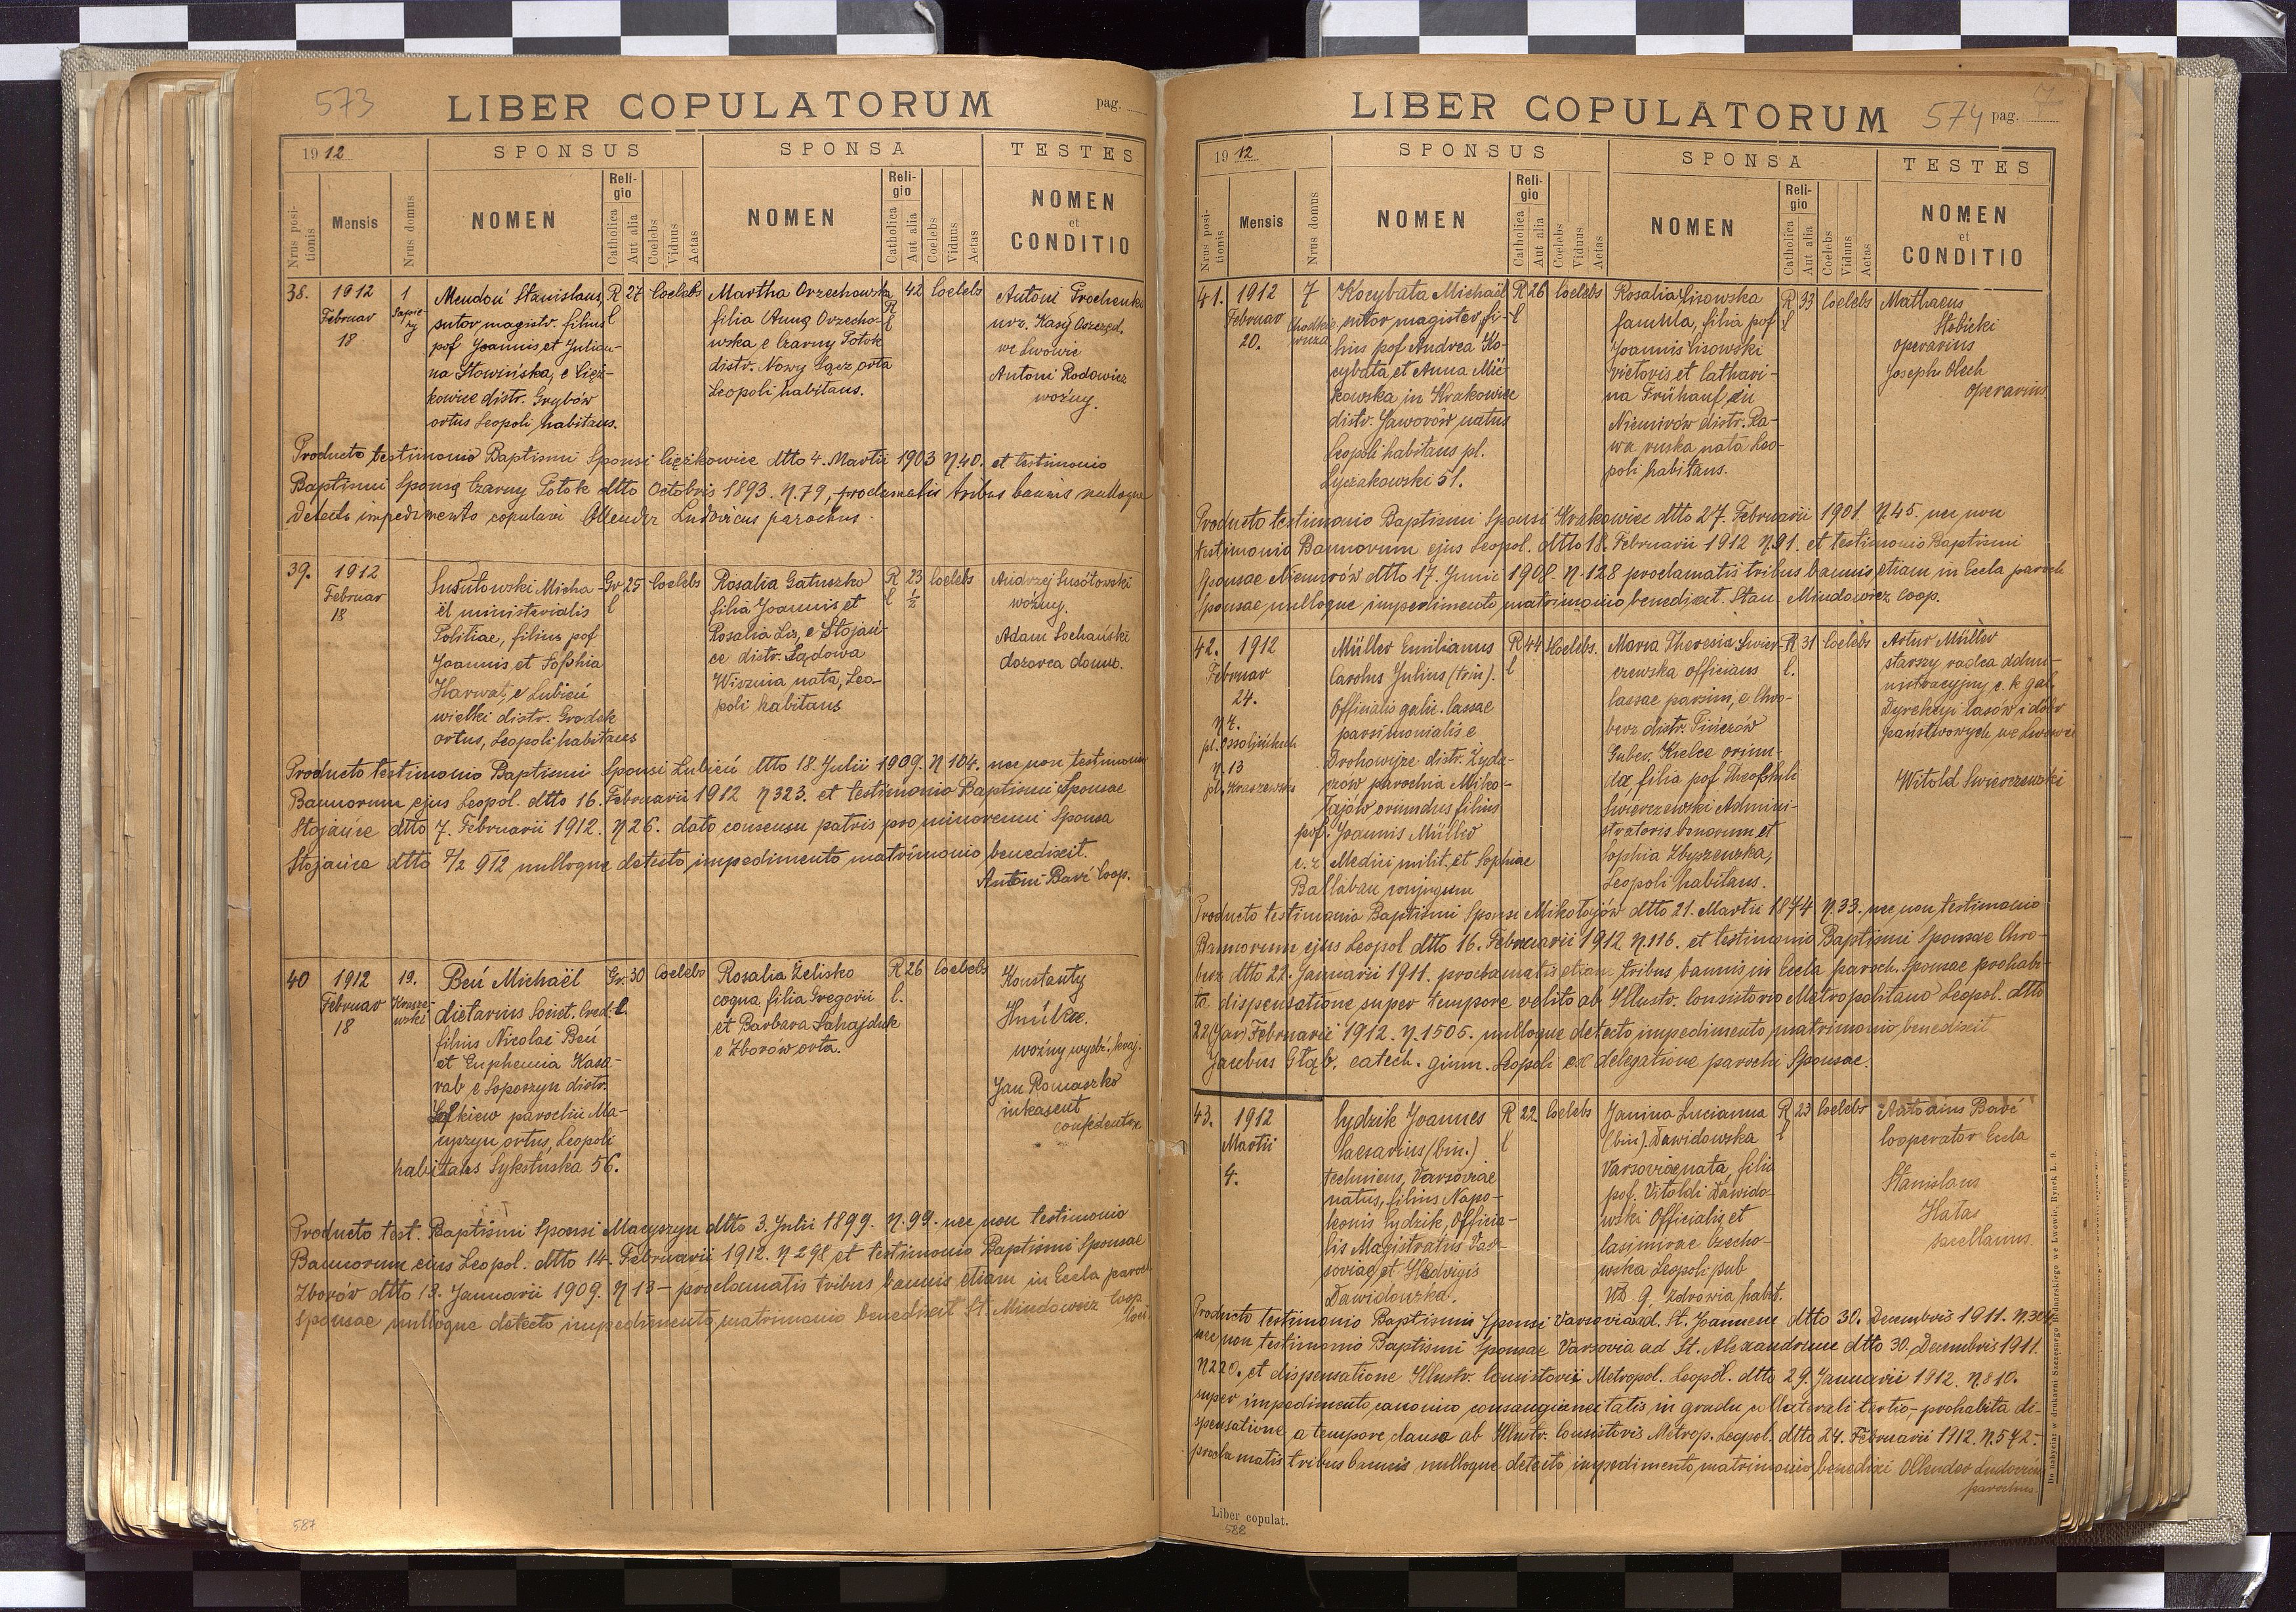 573
LIBER COPULATORUM
pag.
1912
SPONSUS
SPONSA
TESTES
Nrus positionis
Mensis
Nrus domus
NOMEN
Religio
Catholica
Aut alia
Coelebs
Viduus
Aetas
NOMEN
Religio
Catholica
Aut alia
Coelebs
Viduus
Aetas
NOMEN
et
CONDITIO
38.
1912
Februar
18
1
Sapie-
hy
Mendoń Stanislaus
sutor magistr. filius
pof Joannis et Julian-
na Słowińska, e Cięż-
kowice distr. Grybów
ortus Leopoli habitans.
R
l
27
Coelebs
Martha Orzechowska
filia Anna Orzecho-
wska e Czarny Potok
distr. Nowy Sącz orta
Leopoli habitans.
R
l
42
Coelebs
Antoni Prochenko
urz. Kasy Oszczęd.
we Lwowie
Antoni Rodowicz
woźny.
Producto testimonio Baptismi Sponsi Ciężkowice dtto 4. Martii 1903 N.40. et testimonio
Baptismi Sponsę Czarny Potok dtto Octobris 1893. N.79, proclamatis tribus bannis nulloque
detecto impedimento copulavi Ollender Ludovicus parochus.
39.
1912
Februar
18
Susułowski Micha-
ël ministerialis
Politiae, filius pof
Joannis et Sophia
Harwat, e Lubień
wielki distr. Grodek
ortus, Leopoli habitans
Gr
l
25
Coelebs
Rosalia Gatuszko
filia Joannis et
Rosalia Lis, e Stojań-
ce distr. Sądowa
Wisznia nata, Leo-
poli habitans
R
l
23
½
Coelebs
Andrzej Susółowski
woźny.
Adam Sochański
dozorca domu.
Producto testimonio Baptismi Sponsi Lubień dtto 18. Julii 1909. N 104. nec non testimonio
Bannorum ejus Leopol. dtto 16. Februarii 1912 N323. et testimonio Baptismi Sponsae
Stojańce dtto 7. Februarii 1912. N26. dato consensu patris pro minorenni Sponsa
Stojańce dtto 7/2 912 nulloque detecto impedimento matrimonio benedixit.
Antoni Bavč Coop.
40
1912
Februar
18
19.
Krasze-
wski
Beń Michaël
dietarius Soviet. Cred.
filius Nicolai Beń
et Euphemia Kasa-
rab e Soposzyn distr.
Żółkiew parochii Ma-
cyszyn ortus, Leopoli
habitans Sykstuska 56.
Gr.
l.
30
Coelebs
Rosalia Żelisko
coqua filia Gregorii
et Barbara Sahajduk
e Zborów orta.
R
l.
26
Coelebs
Konstanty
Hnilka.
woźny wydz. kraj.
Jan Romaszko
inkasent
confidentor
Producto test. Baptismi Sponsi Macyszyn dtto 3. Julii 1899. N.99. nec non testimonio
Bannorum ejus Leopol. dtto 14. Februarii 1912. N 291 et testimonio Baptismi Sponsae
Zborów dtto 13. Januarii 1909. N 13 – proclamatis tribus bannis etiam in Eccla paroch
Sponsae nulloque detecto impedimento matrimonio benedixit St. Mindowicz Coop
loci.
587
LIBER COPULATORUM
574
pag.
1912
SPONSUS
SPONSA
TESTES
Nrus positionis
Mensis
Nrus domus
NOMEN
Religio
Catholica
Aut alia
Coelebs
Viduus
Aetas
NOMEN
Religio
Catholica
Aut alia
Coelebs
Viduus
Aetas
NOMEN
et
CONDITIO
41.
1912
Februar
20.
7
Chodkie-
wicza
Kocybała Michaël
sutor magister, fi-
lius pof Andrea Ko-
cybała, et Anna Mić-
kowska in Krakowice
distr. Jaworów natus
Leopoli habitans pl.
Łyczakowski 51.
R
l
26
Coelebs
Rosalia Lisowska
famula, filia pof
Joannis Lisowski
victoris et Cathari-
na Frühauf, in
Niemirów distr. Ra-
wa ruska nata Leo-
poli habitans.
R
l
33
Coelebs
Mathaeus
Słobicki
operarius
Joseph Olech
operarius.
Producto testimonio Baptismi Sponsi Krakowice dtto 27. Februarii 1901 N.45. nec non
testimonio Bannorum ejus Leopol. dtto 18. Februarii 1912 N.91. et testimonio Baptismi
Sponsae Niemirów dtto 17. Junii 1908. N.128 proclamatis tribus bannis etiam in Eccla paroch
Sponsae nulloque impedimento matrimonio benedixit. Stan. Mindowicz Coop.
42.
1912
Februar
24.
N 4.
pl. Ossolińskich
N.13
pl. Kraszewsk.
Müller Emilianus
Carolus Julius (trin).
Officialis galic. Cassae
parsimonialis e
Drohowyże distr. Żyda-
czów parochia Miko-
łajów oriundus filius
pof. Joannis Müller
c. r. Medici milit. et Sophiae
Ballaban conjugum
R
l
44
Coelebs.
Maria Theresia Świer-
czewska officians
Cassae parsim, e Chro-
berz distr. Pińczów
Guber. Kielce oriun-
da, filia pof Theophili
Świerczewski Admini-
stratoris bonorum et
Sophia Zbyszewska,
Leopoli habitans.
R
l.
31
Coelebs
Artur Müller
starszy radca admi-
nistracyjny c. k. gal.
Dyrekcji lasów i dóbr
państwowych, we Lwowie
Witold Świerczewski
Producto testimonio Baptismi Sponsi Mikołajów dtto 21. Martii 1874 N.33. nec non testimonio
Bannorum ejus Leopol dtto 16. Februarii 1912 N.116. et testimonio Baptismi Sponsae Chro-
berz dtto 22. Januarii 1911. proclamatis etiam tribus bannis in Eccla paroch. Sponsae prohabi-
ta dispensatione super tempore vetito ab Illustr. Consistorio Metropolitano Leopol. dtto
22 Februarii 1912. N.1505. nulloque detecto impedimento matrimonio benedixit
Jacobus Głąb. catech. gimn. Leopoli ex delegatione parochi Sponsae.
43.
1912
Martii
4.
Cydzik Joannes
Caesarius (bin.)
technicus, Varsoviae
natus, filius Napo-
leonis Cydzik, Officia-
lis Magistratus Var-
soviae et Hedvigis
Dawidowska.
R
l
22.
Coelebs
Janina Lucianna
(bin). Dawidowska
Varsoviae nata, filia
pof. Vitoldi Dawido-
wski Officialis et
Casimirae Czecho-
wska Leopoli sub
N. 9. Zdrowia habit.
R
l
23
Coelebs
Antonius Bavč
Cooperator Eccla
Stanislaus
Hatas
sacellanus.
Producto testimonio Baptismi Sponsi Varsovia ad. St. Joannem dtto 30. Decembris 1911.
nec non testimonio Baptismi Sponsae Varsovia ad St. Alexandrum dtto 30. Decembris 1911.
N220. et dispensatione Illustr. Consistorii Metropol. Leopol. dtto 29. Januarii 1912. N.810.
super impedimento canonico consanguineitatis in gradu collaterali tertio, – prohabita di-
spensatione a tempore clauso ab Illustr. Consistoris Metrop. Leopol. dtto 24. Februarii 1912. N.572.
proclamatis tribus bannis nulloque detecto impedimento matrimonio benedixi Ollender Ludovicus
parochus.
Liber copulat.
588